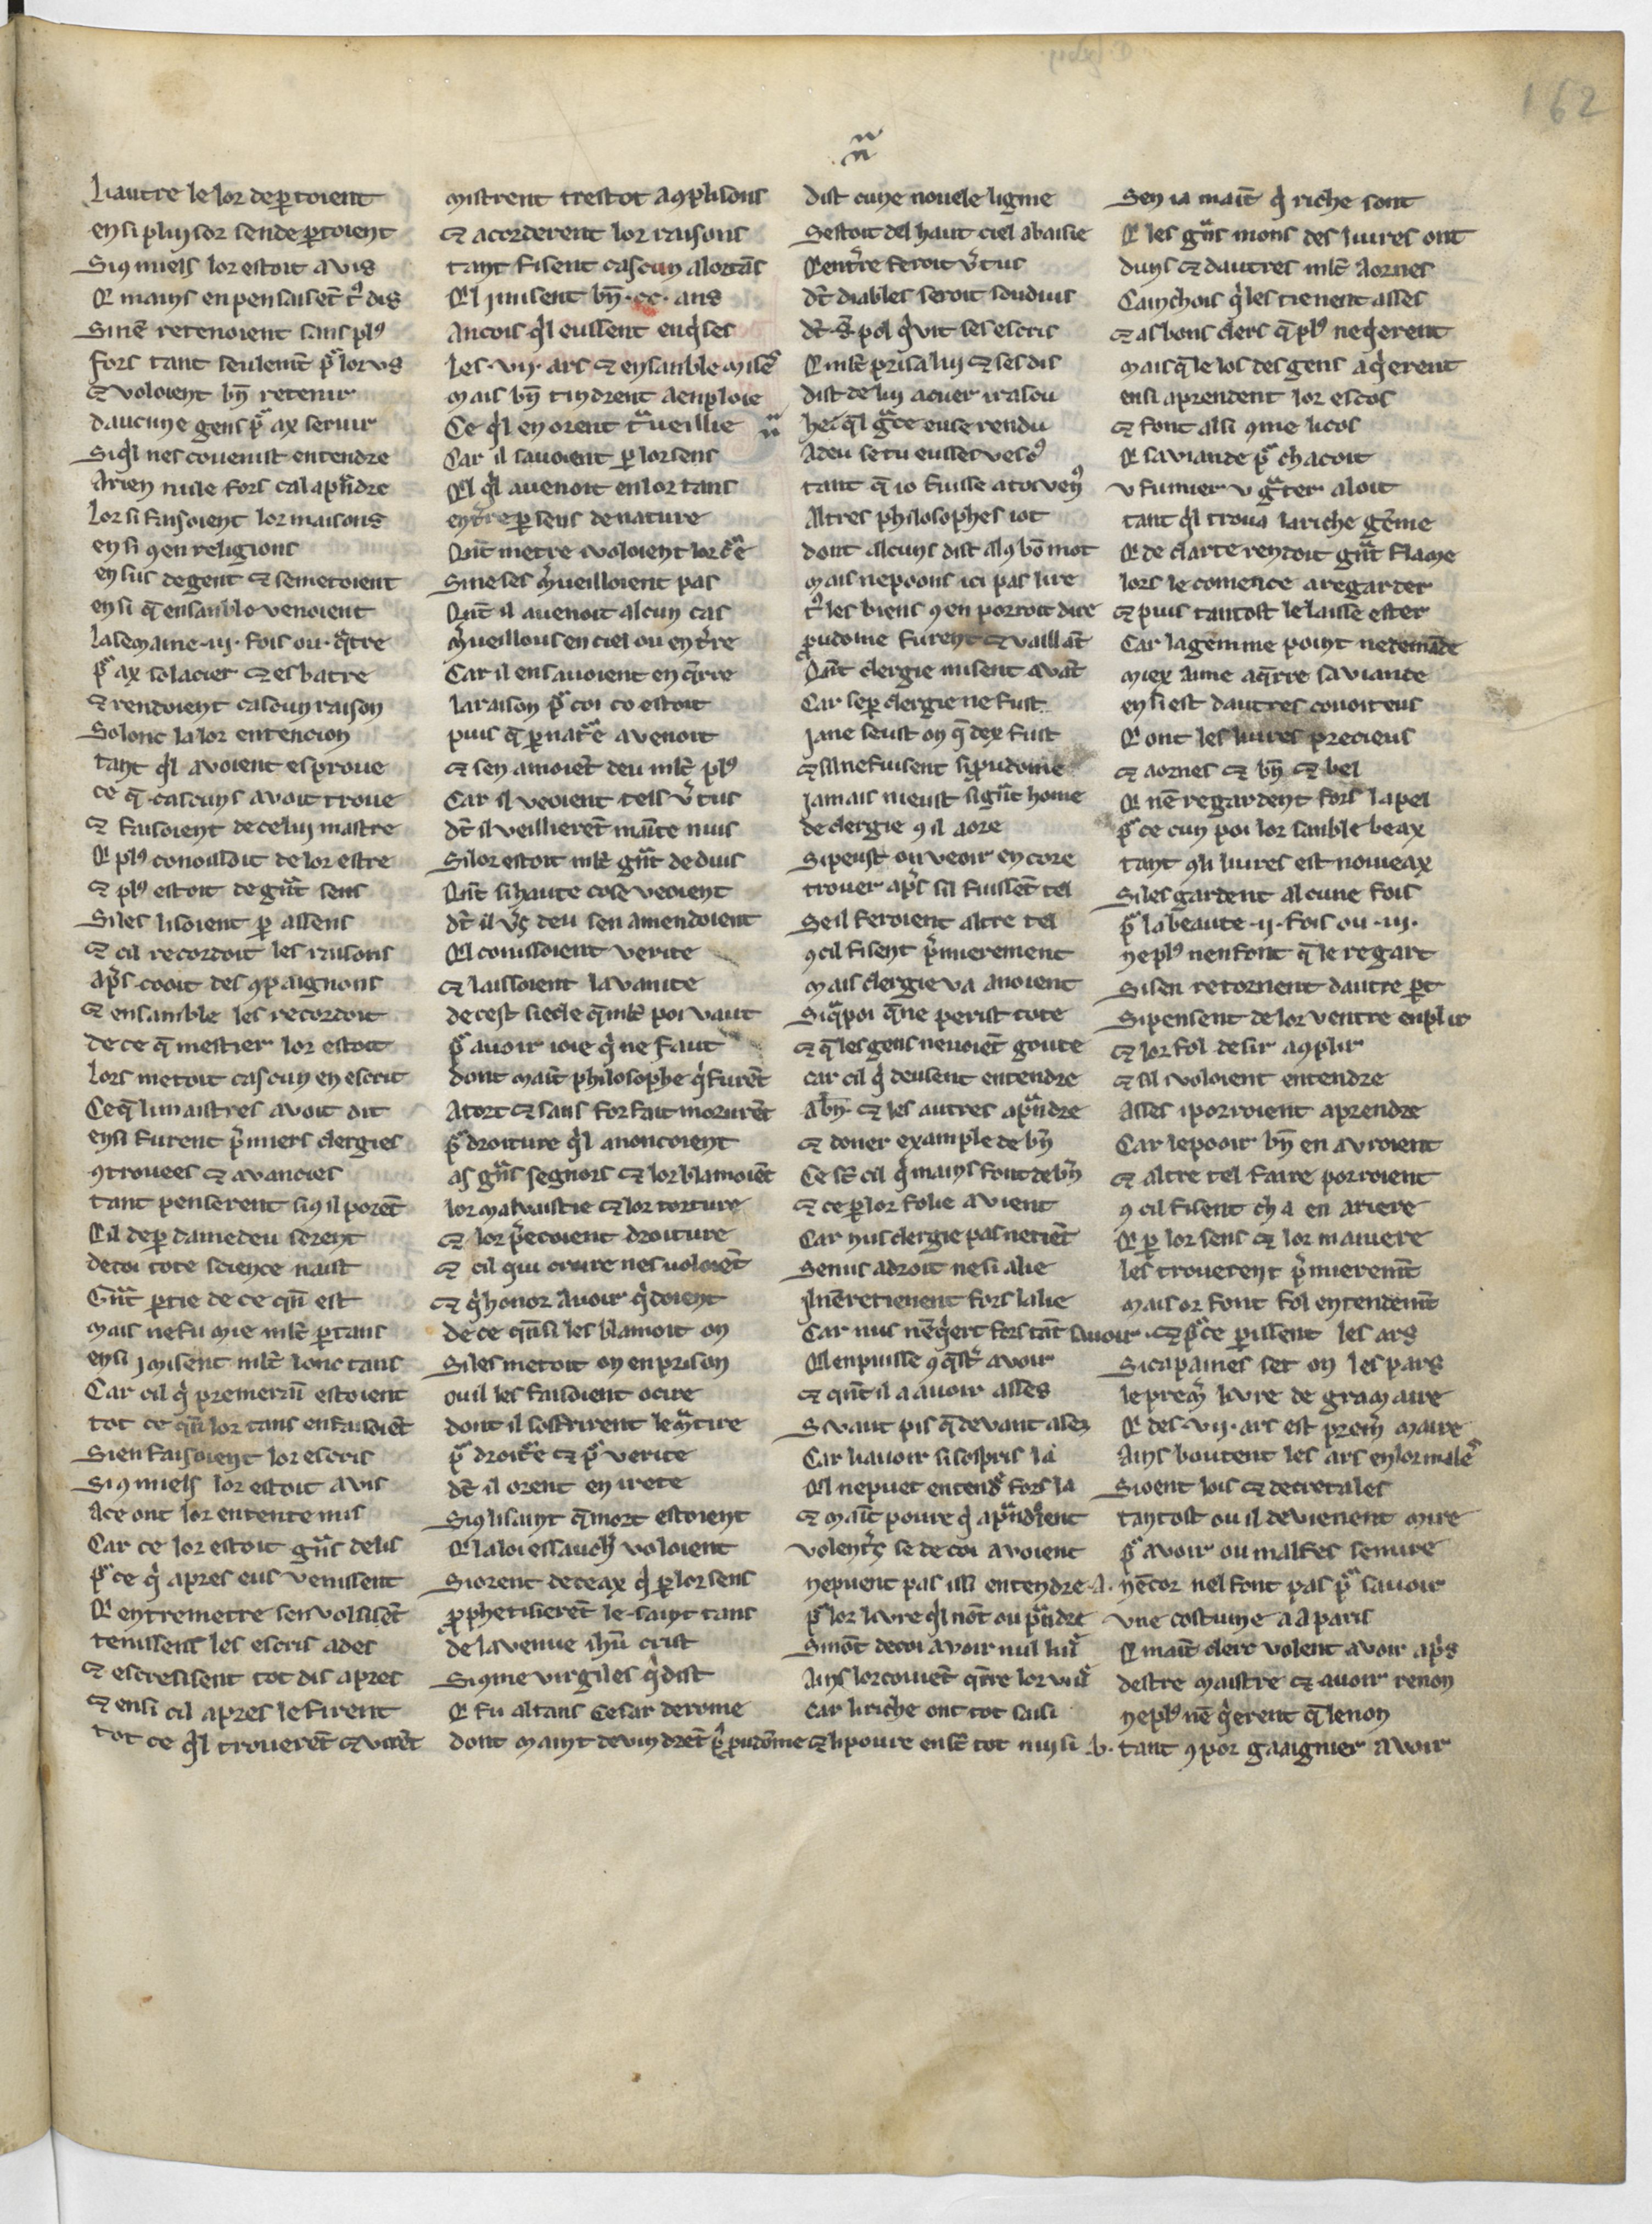 162
Li autre le lor departoient
en si plusor sen departoient
Si q miels lor estoit avis
Q mains en pensaisẽt t⁹ dis
Sinẽ retenoient sans pl⁹
fors tant seulemẽt pᵒ lor us
⁊ voloient bñ retenir
daucune gens pᵒ ax servir
Si ql nes covenist entendre
A rien nule fors cal apñdre
Lor si faisoient lor maisons
en si ꝯ en religions
en sus de gent ⁊ se metoient
en si q̃ ensanble venoient
la semaine .iij. fois ou .qᵃtre
pᵒ ax solacier ⁊ esbatre
⁊ rendoient cascun raison
Solonc la lor entencion
tant ql avoient esprove
ce q̃ cascuns avoit trove
⁊ faisoient de celui mastre
Q pl⁹ conoissoit de lor estre
⁊ pl⁹ estoit de gᵃnt sens
Si les lisoient ꝑ assens
⁊ cil recordoit les raisons
apͥs cooit des ꝯpaignons
⁊ ensamble les recordoit
de ce q̃ mestier lor estoit
lors metoit cascun en escrit
Ce q̃ li maistres avoit dit
ensi furent pͥmiers clergies
ꝯtrovees ⁊ avancies
tant penserent si q il porẽt
Cil de ꝑ damedeu sorent
de coi tote science naist
Gᵃnt ꝑtie de ce qͥñ est
mais ne fu mie mlt̃ ꝑ tans
ensi j misent mlt̃ lonc tans
Car cil qͥ premerañ estoient
tot ce qͥñ lor tans en faisoiẽt
Si en faisoient lor escris
Si q miels lor estoit avis
A ce ont lor entente mis
Car ce lor estoit gᵃns delis
pᵒ ce qͥ apres eus venissent
Q entremetre sen volsisẽt
tenissent les escris ades
⁊ escresisent tot dis apres
⁊ ensi cil apres le firent
tot ce ql troverẽt ⁊ virẽt
mistrent trestot a ꝯplisons
⁊ acorderent lor raisons
tant fisent cascun a lor tãs
Ql j misent bñ .cc. ans
Ancois ql eussent enqͥses
les .vij. ars ⁊ ensanble mise
mais bñ tindrent a enploie
Ce ql en orent tᵃveillie
Car il savoient ꝑ lor sens
Ql ql avenoit en lor tans
en tͤre ꝑ sens de nature
Qᵃnt metre i voloient lor cᵘe
Si ne ses mͤveilloient pas
Qᵃnt il avenoit alcun cas
mͤveillous en ciel ou en tͤre
Car il en savoient enqͥrre
la raison pᵒ coi co estoit
puis q̃ ꝑ natᵘe avenoit
⁊ sen amoiẽt deu mlt̃ pl⁹
Car il veoient tels vͤtus
dt̃ il veillierẽt mainte nuis
Si lor estoit mlt̃ gᵃnt deduis
Qᵃnt si haute cose veoient
dt̃ il vͤs deu sen amendoient
Ql conissoient verite
⁊ laissoient la vanite
de cest siecle q̃ mlt̃ poi vaut
pᵒ avoir ioie qͥ ne faut
dont maĩt philosophe qͥ furẽt
A tort ⁊ sans forfait morurẽt
pᵒ droiture ql anoncoient
as gᵃns segnors ⁊ lor blamoiẽt
lor malvaistie ⁊ lor torture
⁊ lor pͤecoient droiture
⁊ cil qui croire nes voloiẽt
⁊ qͥ honor avoir qͥdoient
de ce qᵃnsi les blamoit on
Si les metoit on en prison
ou il les faisoient ocire
dont il soffrirent le mᵃtire
pᵒ droitᵘe ⁊ pᵒ verite
dt̃ il orent en irete
Si q li saint q̃ mort estoient
Q la loi essaucͥ voloient
Si orent de ceax qͥ ꝑ lor sens
ꝓphetisierẽt le saint tans
de la venue ihũ crist
Si ꝯme virgiles qͥ dist
Q fu al tans Cesar de rome
dont maint devindrẽt pͥ ꝓudõme
dist cune novele ligne
Sestoit del haut ciel abaisie
Q en tͤre feroit vͤtus
dt̃ diables seroit souduis
dt̃ .s̃. pol qͥ vit ses escris
Q mlt̃ prisa lui ⁊ ses dis
dist de lui a cuer irascu
hei ql gᵃce eusse rendu
A deu se tu eusses vesc⁹
tant q̃ io fuisse a toi ven⁹
Altres philosophes i ot
dont alcuns dist alq̃ bõ mot
mais ne poons ici pas lire
t⁹ les biens ꝯ en porroit dire
ꝓudome furent ⁊ vaillãt
Qᵃnt clergie misent avãt
Car se ꝑ clergie ne fust
Ja ne seust on q̃ dex fust
⁊ sil ne fuissent si ꝓudome
Jamais nieust si gᵃnt home
de clergie ꝯ il a ore
Si peust ou veoir encore
trover apͥs sil fuissẽt tel
Se il feroient altre tel
ꝯ cil fisent pͥmierement
mais clergie va a noient
Si qᵃ poi q̃ ne perist tote
⁊ q̃ les gens ne voiẽt goute
car cil qͥ deussent entendre
A bñ ⁊ les autres apᵃndre
⁊ doner example de bñ
Ce st̃ cil qͥ mains font de bñ
⁊ ce ꝑ lor folie avient
Car nus clergie pas ne tiẽt
Se nus a droit ne si alie
Il nẽ retienent fors la lie
Car nus nẽ qͥert fors tãt savoir
Ql en puisse ꝯqͥstͬ avoir
⁊ qᵃnt il a avoir asses
Si vaut pis q̃ devant ases
Car li avoir si sospris la
Ql ne puet entendͬ fors la
⁊ maĩt povre qͥ apᵃndͬoient
volentͥs se de coi avoient
ne puent pas isi entendre .a.
pᵒ lor livre ql nõt ou pᵃndre
Si nõt de coi avoir nul liuͬ
Ains lor coviẽt qͥrre lor viuͬ
Car li riche ont tot saisi
⁊ li povre en st̃ tot nuisi .b.
Sen ia maĩt qͥ riche sont
Q les gᵃns mons des livres ont
duns ⁊ dautres mlt̃ aornes
Cainchois qͥ les tienent asses
⁊ as bons clers q̃ pl⁹ ne qͥerent
mais q̃ le los des gens aqͥerent
ensi aprendent lor escos
⁊ font alsi ꝯme li cos
Q sa viande pᵒ chacoit
v fumier v gᵃter aloit
tant ql trova la riche gẽme
Q de clarte rendoit gᵃnt flame
lors le comence a regarder
⁊ puis tantost le laisse ester
Car la gemme point ne demãde
miex aime aqͥrre sa viande
en si est dautres covoiteus
Q ont les livres precieus
⁊ aornes ⁊ bñ ⁊ bel
Q nẽ regardent fors la pel
pᵒ ce cun poi lor sanble beax
tant ꝯ li livres est noveax
Si les gardent alcune fois
pᵒ la beaute .ij. fois ou .iij.
ne pl⁹ nen font q̃ le regart
Si sen retornent dautre ꝑt
Si pensent de lor ventre enplir
⁊ lor fol desir aꝯplir
⁊ sil i voloient entendre
Asses i porroient aprendre
Car le pooir bñ en avroient
⁊ altre tel faire porroient
ꝯ cil fisent cha en ariere
Q ꝑ lor sens ⁊ lor maniere
les troverent pͥmieremẽt
mais or font fol entendemẽt
⁊ pᵒ ce ꝑissent les ars
Si ca paines set on les pars
le premͥ livre de gramaire
Q des .vij. ars est premͥ maire
Ains boutent les ars en lor malẽ
Si oent lois ⁊ decretales
tantost ou il devienent mire
pᵒ avoir ou malfes se mire
nẽcor nel font pas pᵒ savoir
vne costume a a paris
Q maĩt clerc volent avoir apͥs
destre maistre ⁊ avoir renon
ne pl⁹ nẽ qͥerent q̃ le non
tant ꝯ por gaaignier avoir